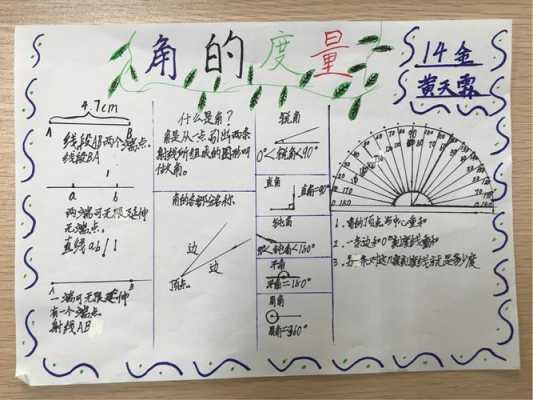 角的度量
14金
黄天霖
4.7cm
A B
线段AB两个端点.
线段BA
a b
两端可无限延伸
无端点.
直线ab
一端可无限延伸
有一个端点
射线AB
什么是角?
角是从一点引出两条
射线所组成的图形叫
做角。
角的各部分名称.
边
边
顶点
锐角
0°<锐角<90°
直角
直角=90°
钝角
<钝角<180°
平角
平角=180°
周角
周角=360°
1.角的顶点与中心重和
2.一条边和0°刻度线重和
3.另一条对这几度刻度线就是多少度